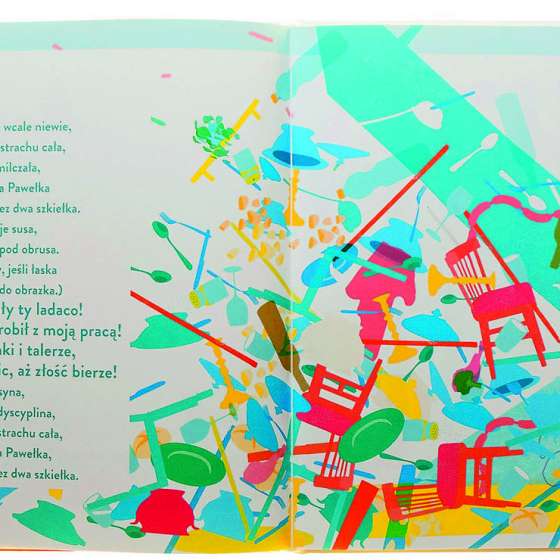 wcale niewie,
strachu cała,
milczała,
a Pawełka
ez dwa szkiełka.
je susa,
pod obrusa.
, jeśli łaska
do obrazka.)
ły ty ladaco!
robił z moją pracą!
ki i talerze,
ic, aż złość bierze!
syna,
dyscyplina,
strachu cała,
a Pawełka,
ez dwa szkiełka.